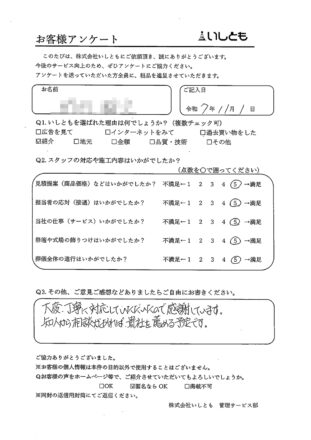 お客様アンケート
いしとも
このたびは、株式会社いしともにご依頼頂き、誠にありがとうございます。
今後のサービス向上のため、ぜひアンケートにご協力ください。
アンケートを送っていただいた方全員に、粗品を進呈させていただきます。
お名前
ご記入日
令和 7年 11月 1日
Q1.いしともを選ばれた理由は何でしょうか?(複数チェック可)
□広告を見て □インターネットをみて □過去買い物をした
☑紹介 □地元 □金額 □品質・技術 □その他
Q2.スタッフの対応や施工内容はいかがでしたか?
(点数を○で囲ってください)
見積提案(商品価格)などはいかがでしたか? 不満足←1 2 3 4 ⑤→満足
担当者の応対(接遇)はいかがでしたか? 不満足←1 2 3 4 ⑤→満足
当社の仕事(サービス)いかがでしたか? 不満足←1 2 3 4 ⑤→満足
祭壇や式場の飾りつけはいかがでしたか? 不満足←1 2 3 4 ⑤→満足
葬儀全体の進行はいかがでしたか? 不満足←1 2 3 4 ⑤→満足
Q3.その他、ご意見ご感想などありましたらご自由にお書きください。
大変丁寧に対応していただいたので感謝しています。
知人から相談などがあれば、貴社を薦める予定です。
ご協力ありがとうございました。
※お客様の個人情報は本件の目的以外で使用することはございません。
Qお客様の声をホームページ等で、ご紹介させていただいてもよろしいでしょうか。
□OK ☑匿名ならOK □掲載不可
※同封の返信用封筒にてご返信ください。
株式会社いしとも 管理サービス部